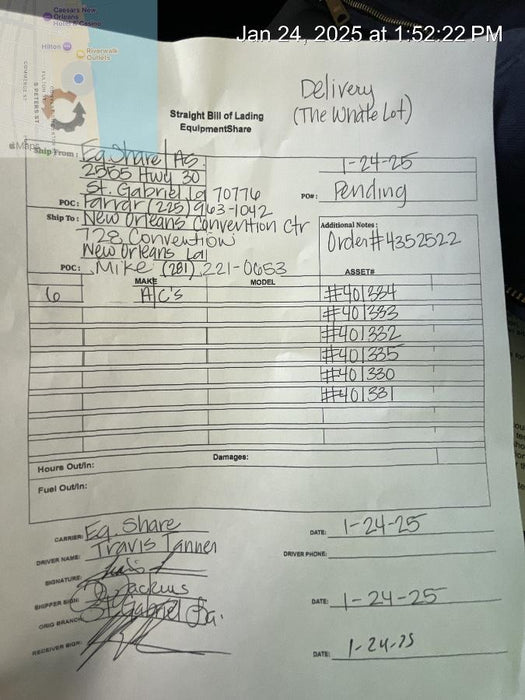 Caesars New
Orleans
Hotel & Casino
Hilton
Riverwalk
Outlets
Maps
Jan 24, 2025 at 1:52:22 PM
Delivery
(The Whale Lot)
Straight Bill of Lading
EquipmentShare
Ship From: Eq Share A/S
2565 Hwy 30
St. Gabriel La 70776
POC: Farrar (225) 963-1042
1-24-25
PO#: Pending
Ship To: New Orleans Convention Ctr
728 Convention
New Orleans La
POC: Mike (281) 221-0653
Additional Notes:
Order# 4352522
MAKE MODEL ASSET#
6 A/C's #401334
#401333
#401332
#401335
#401330
#401331
Hours Out/In: Damages:
Fuel Out/In:
CARRIER: Eq. Share DATE: 1-24-25
DRIVER NAME: Travis Tanner DRIVER PHONE:
SIGNATURE:
SHIPPER SIGN: DATE: 1-24-25
ORIG BRANCH: St. Gabriel La.
RECEIVER SIGN: DATE: 1-24-25